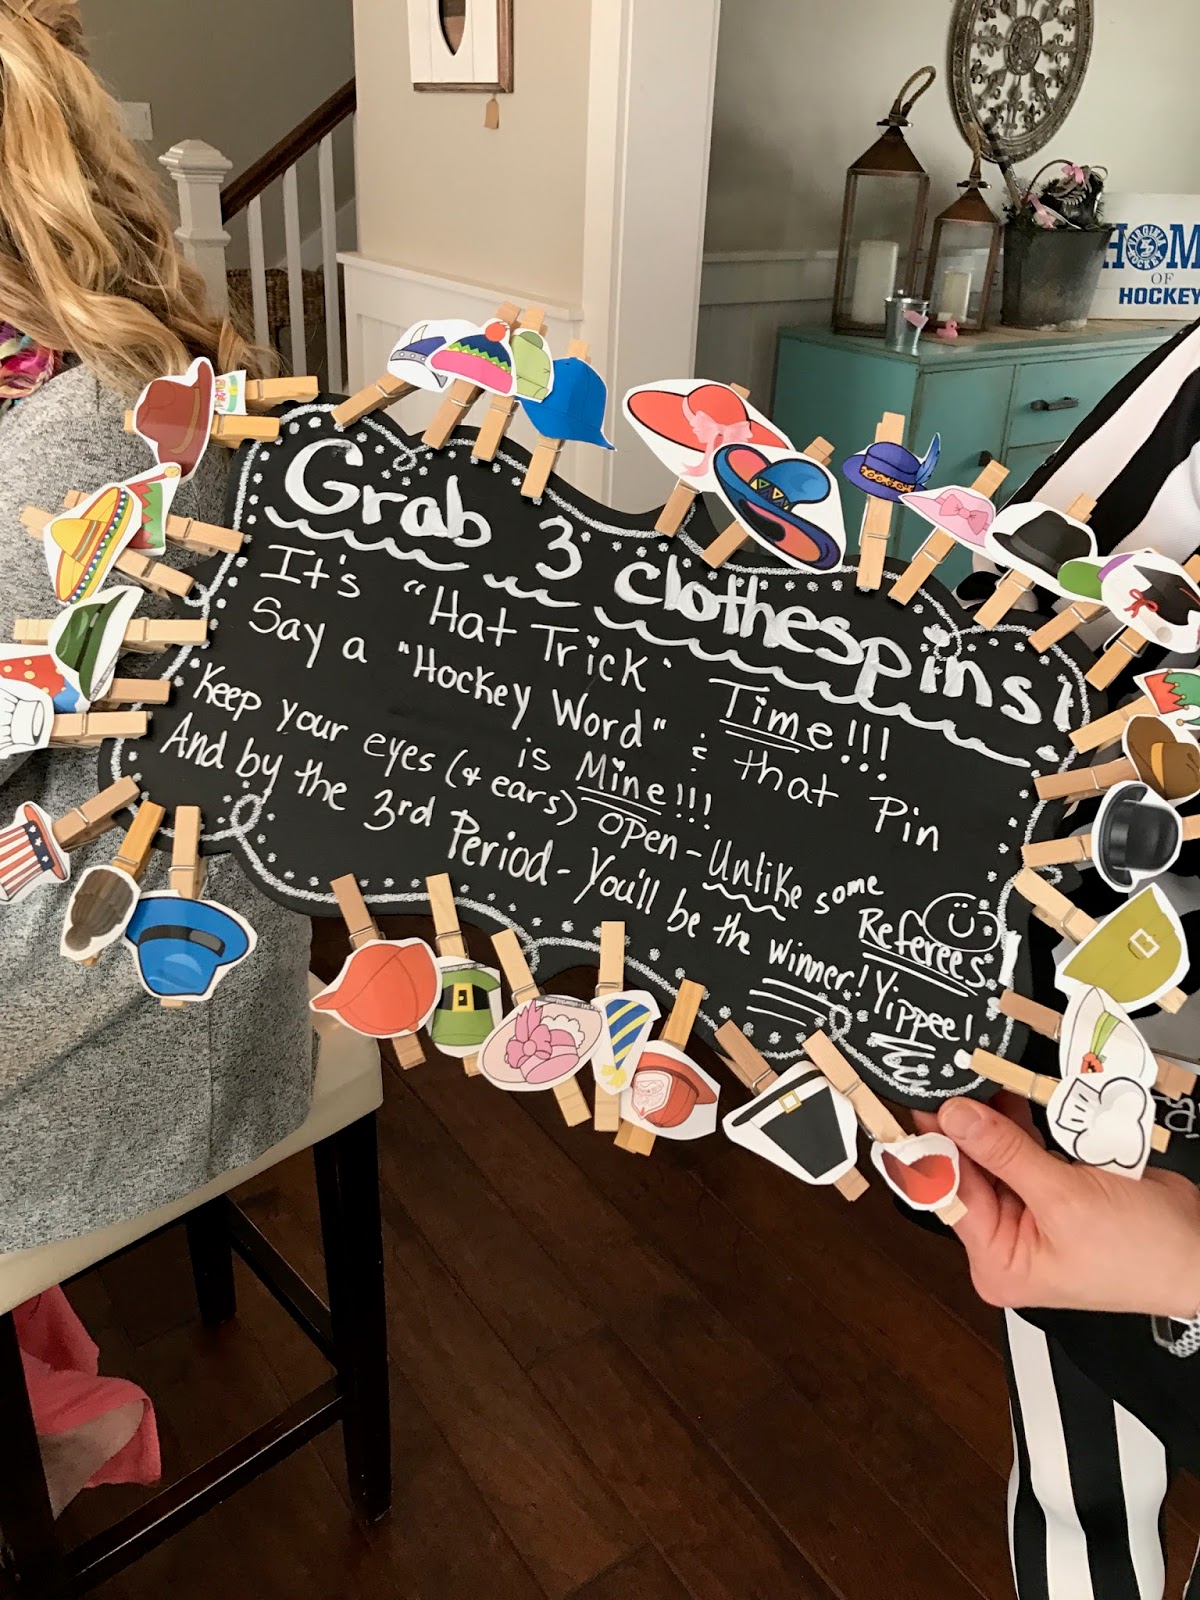 Grab 3 clothespins!
It's "Hat Trick" Time!!!
Say a "Hockey Word" & that Pin
is Mine!!!
Keep your eyes (& ears) open - Unlike some Referees!
And by the 3rd Period - You'll be the winner! Yippee!
HOM
VIRGINIA HOCKEY
OF
HOCKEY